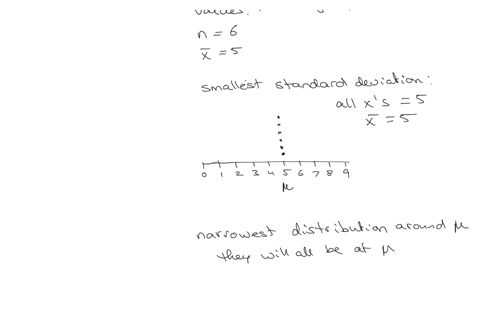 values.
n = 6
x̄ = 5
smallest standard deviation:
all x's = 5
x̄ = 5
0 1 2 3 4 5 6 7 8 9
μ
narrowest distribution around μ
they will all be at μ